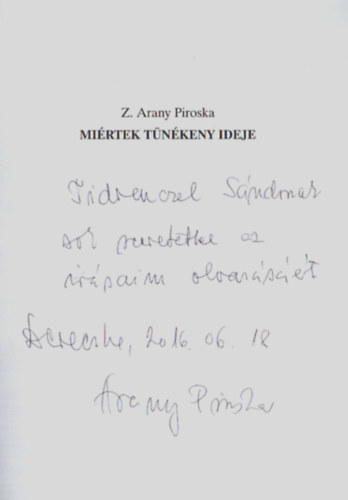 Z. Arany Piroska
MIÉRTEK TŰNÉKENY IDEJE
Sándornak
sok szeretettel az
írásaim olvasásáért
Derecske, 2016. 06. 18
Arany Piroska